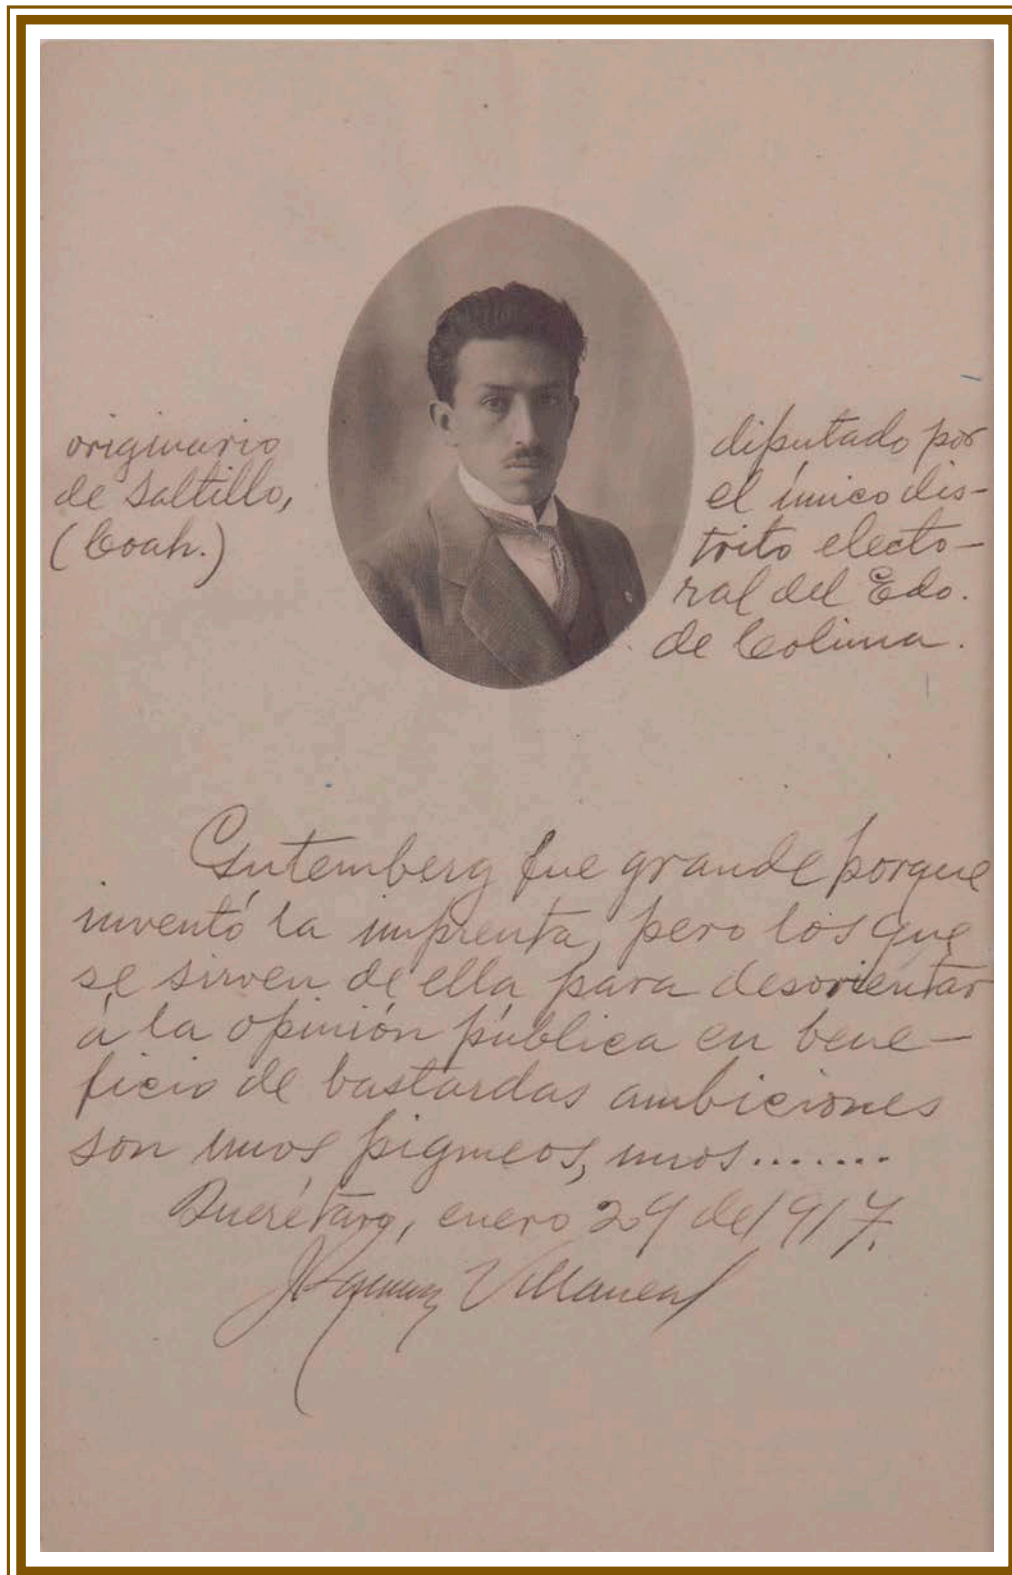 originario
de Saltillo,
(Coah.)
diputado por
el único dis-
trito electo-
ral del Edo.
de Colima.
Gutemberg fue grande porque
inventó la imprenta, pero los que
se sirven de ella para desorientar
á la opinión pública en bene-
ficio de bastardas ambiciones
son unos pigmeos, unos.......
Querétaro, enero 29 de 1917.
J. Ramírez Villarreal